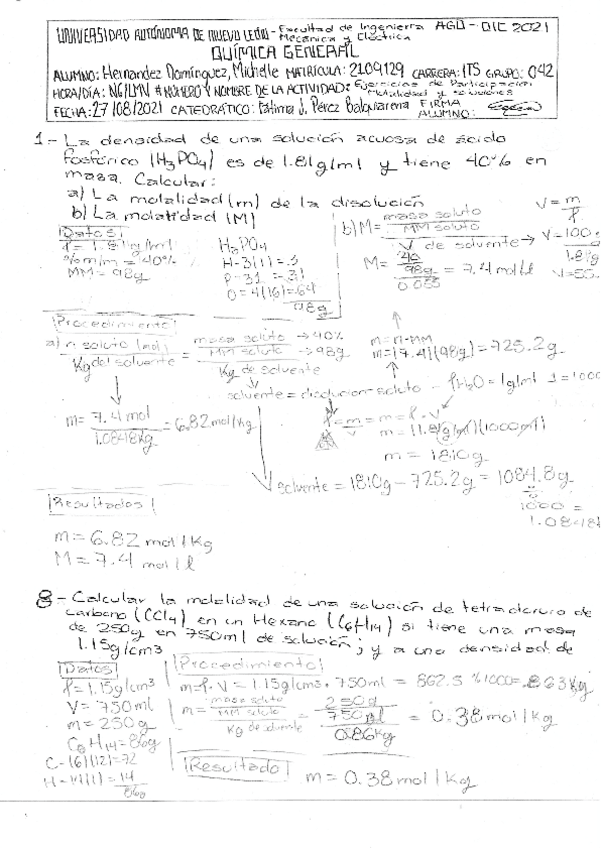 UNIVERSIDAD AUTÓNOMA DE NUEVO LEÓN - Facultad de Ingeniería Mecánica y Eléctrica AGO - DIC 2021
QUÍMICA GENERAL
ALUMNO: Hernandez Domínguez, Michelle MATRICULA: 2109129 CARRERA: ITS GRUPO: 042
HORA/DÍA: N6/LMN # NÚMERO Y NOMBRE DE LA ACTIVIDAD: Ejercicios de Participación Molalidad y soluciones
FECHA: 27/08/2021 CATEDRÁTICO: Fátima J. Pérez FIRMA ALUMNO:
1- La densidad de una solución acuosa de ácido
fosfórico (H3PO4) es de 1.81g/ml y tiene 40% en
masa. Calcular:
a) La molalidad (m) de la disolución
b) La molaridad (M)
Datos
ρ = 1.81g/ml
%m/m = 40%
MM = 98g
H3PO4
H-3(1) = 3
P-31 = 31
O = 4(16) = 64
98g
b) M = masa soluto
MM soluto
V de solvente →
M = 40
98g
0.055
= 7.4 mol/l
V = m
ρ
V = 100g
1.81g
V = 55.
Procedimiento
a) n soluto (mol)
Kg del solvente
= masa soluto → 40%
MM soluto → 98g
Kg de solvente
m = n·MM
m = (7.4)(98g) = 725.2g
solvente = disolucion - soluto
ρH2O = 1g/ml 1 = 1000
m = 7.4 mol
1.0848kg
= 6.82 mol/kg
ρ = m
v
= m = ρ · V
m = (1.81g/ml)(1000ml)
m = 1810g
solvente = 1810g - 725.2g = 1084.8g
1000 =
1.0848
Resultados
m = 6.82 mol/kg
M = 7.4 mol/l
8- Calcular la molalidad de una solución de tetracloruro de
carbono (CCl4) en un Hexano (C6H14) si tiene una masa
de 250g en 750ml de solución; y a una densidad de
1.15g/cm3
Datos
ρ = 1.15g/cm3
V = 750ml
m = 250g
C6H14 = 86g
C-(6)(12) = 72
H-14(1) = 14
86g
Procedimiento
m = ρ · V = 1.15g/cm3 · 750ml = 862.5 %1000 = .863kg
m = masa soluto
MM soluto
Kg de solvente
= 250g
750ml
0.86kg
= 0.38mol/kg
Resultado
m = 0.38 mol/kg